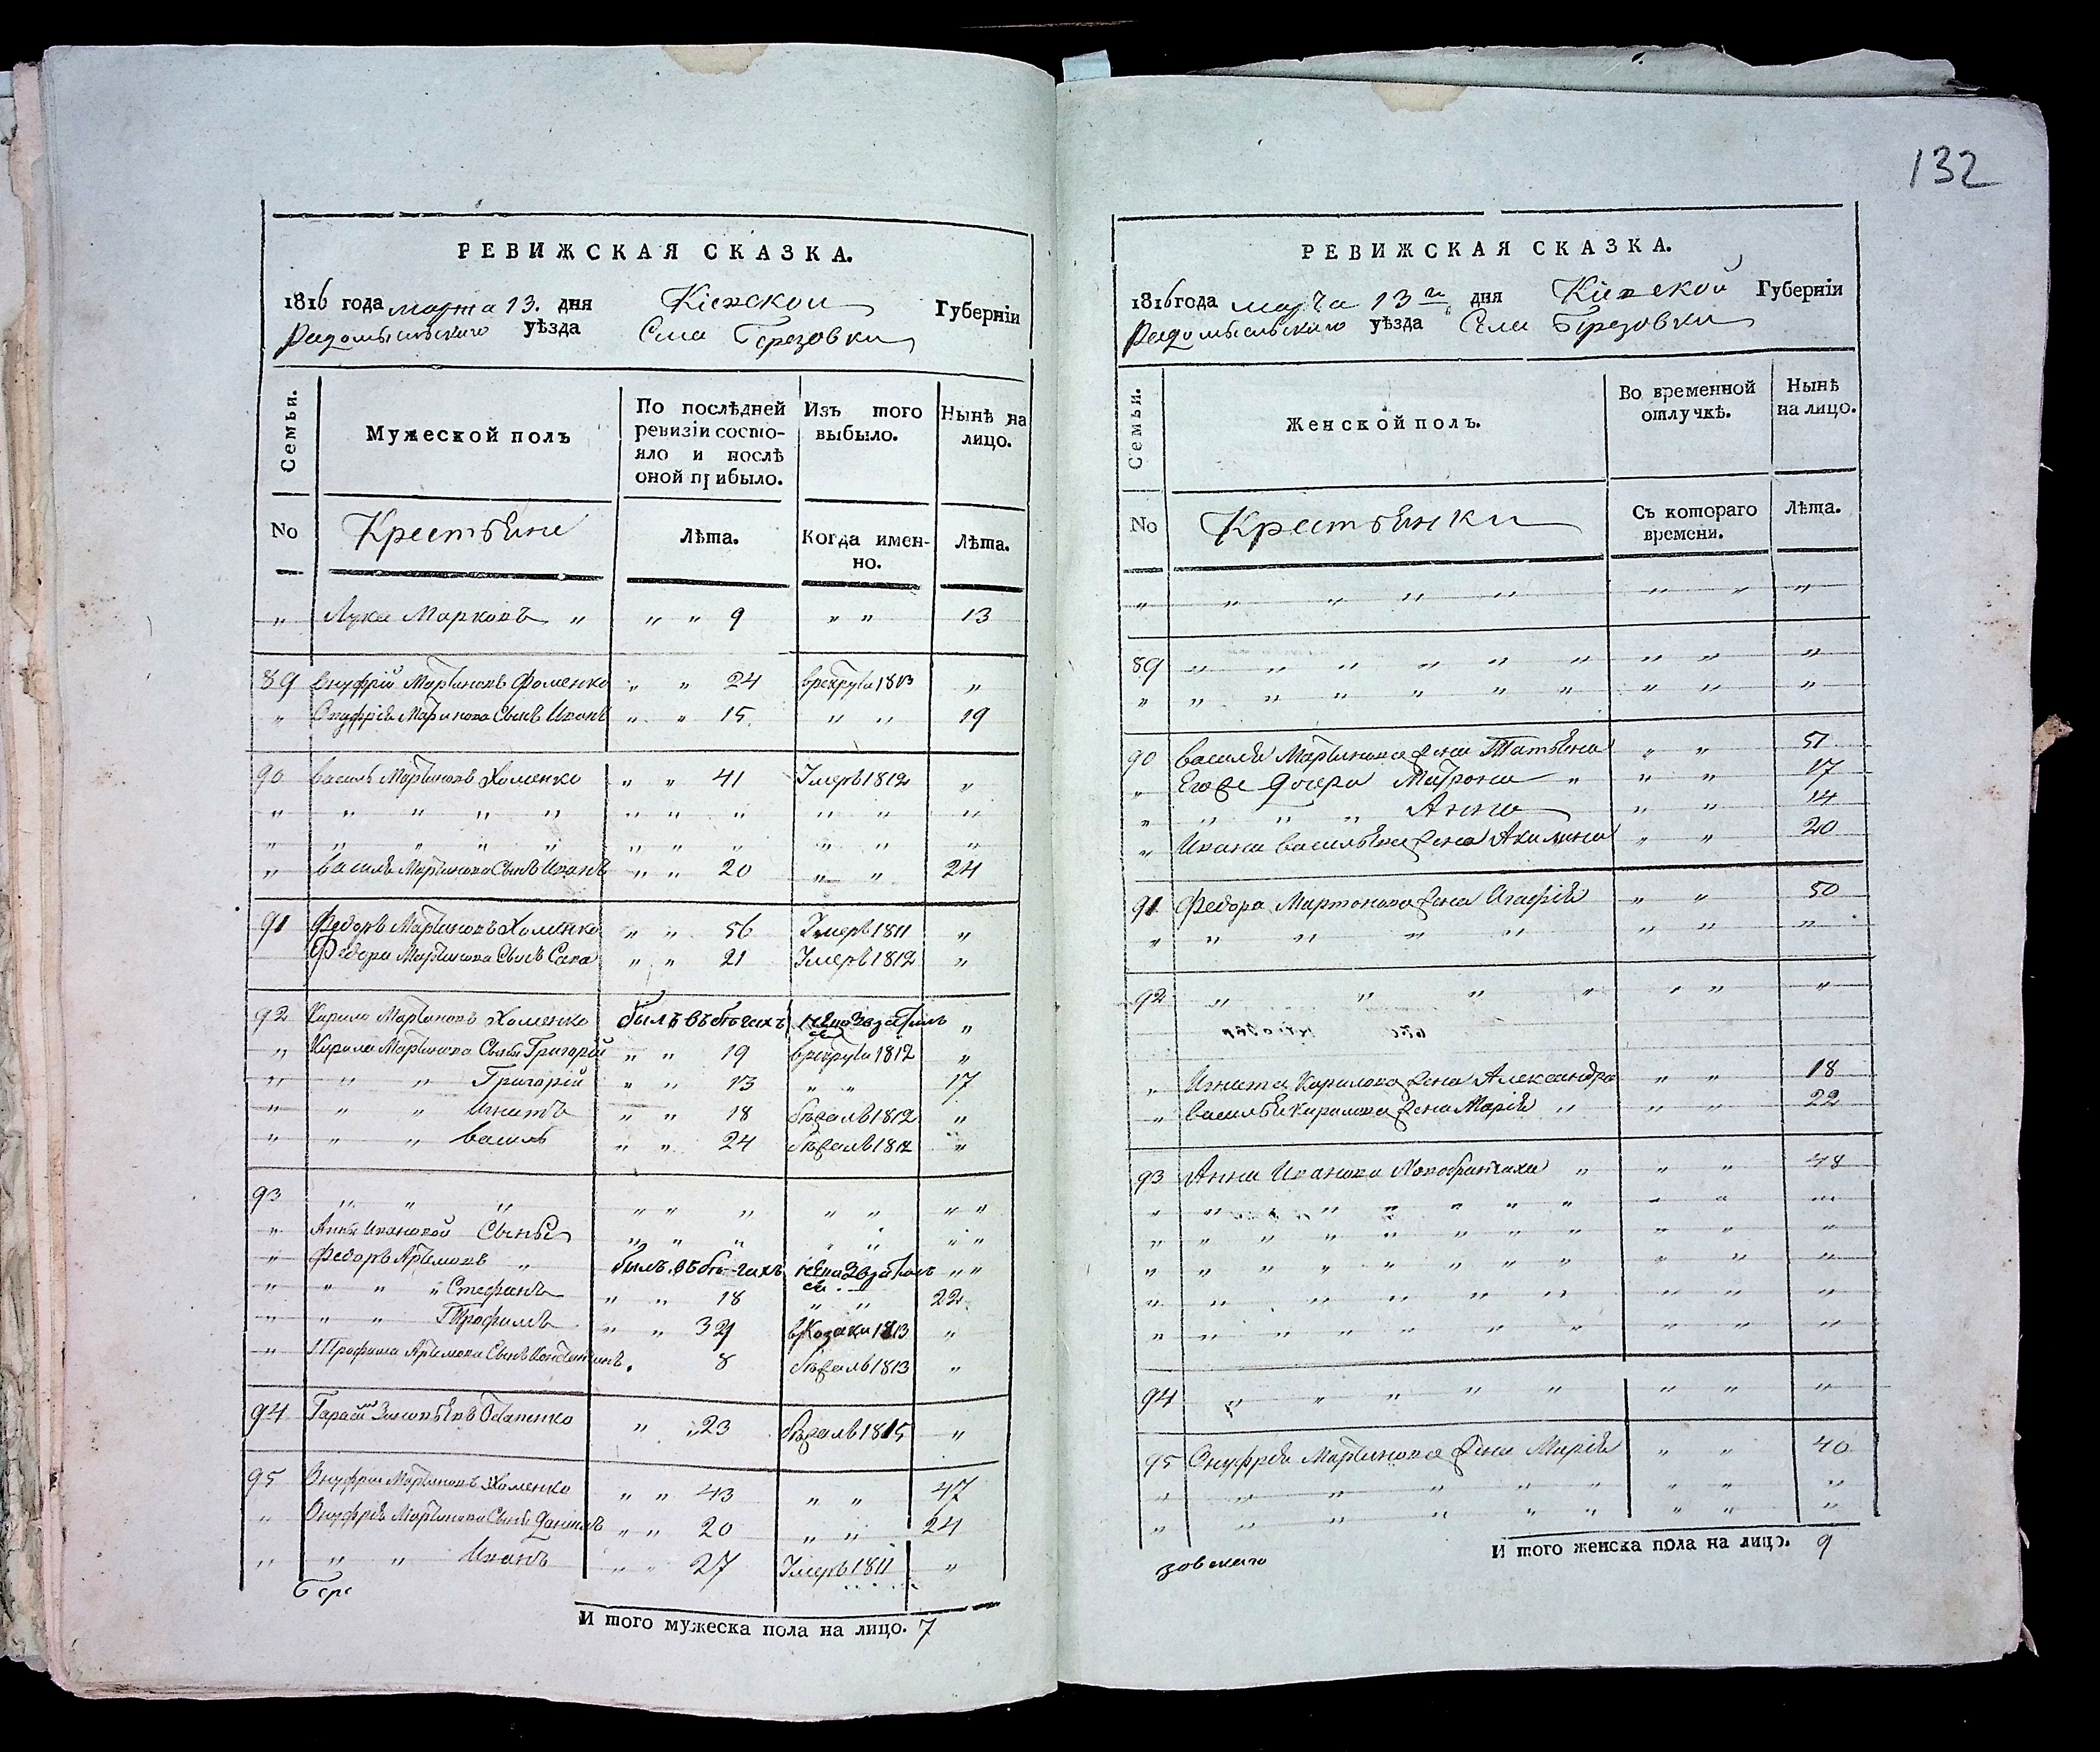 132
РЕВИЖСКАЯ СКАЗКА.
1816 года марта 13. дня Кіевской Губерніи
Радомысльскаго уѣзда Села Березовки
Семьи.
Мужеской полъ
По послѣдней ревизіи состо-
яло и послѣ
оной прибыло.
Изъ того
выбыло.
Нынѣ на
лицо.
No Крестьяне Лѣта. Когда имен-
но. Лѣта.
„ Лука Марковъ „ „ „ 9 „ „ 13
89 Онуфрій Мартиновъ Фоменко „ „ 24 врекруты 1813 „
„ Онуфрія Мартинова Сынъ Иванъ „ „ 15 „ „ 19
90 Василь Мартиновъ Хоменко „ „ 41 Умеръ 1812 „
„ „ „ „ „ „ „ „ „ „ „
„ „ „ „ „ „ „ „ „ „ „
„ Василя Мартинова Сынъ Иванъ „ „ 20 „ „ 24
91 Федоръ Мартиновъ Хоменко „ „ 56 Умеръ 1811 „
Федора Мартинова Сынъ Сава „ „ 21 Умеръ 1812 „
92 Кирило Мартиновъ Хоменко былъ въ бѣгахъ неповзатъ „
„ Кирила Мартинова Сыны Григорій „ „ 19 врекруты 1812 „
„ „ „ Григорій „ „ 13 „ „ 17
„ „ „ Игнатъ „ „ 18 бѣжалъ 1812 „
„ „ „ Василь „ „ 24 бѣжалъ 1812 „
93 „ „ „ „ „ „ „ „ „ „
„ Анны Ивановой Сынья „ „ „ „ „ „ „
„ Федоръ Артемовъ „ былъ въ бѣгахъ „ „
„ „ „ „ Стефанъ „ „ 18 „ „ 22
„ „ „ Трофимъ „ „ 32 в Козаки 1813 „
„ Трофима Артемова Сынъ Константинъ. 8 бѣжалъ 1813 „
94 Герасим Зиновьевъ Остапенко „ „ 23 бѣжалъ 1815 „
95 Онуфрій Мартиновъ Хоменко „ „ 43 „ „ 47
„ Онуфрія Мартинова Сыны Данило „ „ 20 „ „ 24
„ „ „ Иванъ „ „ 27 Умеръ 1811 „
Бере
И того мужеска пола на лицо. 7
РЕВИЖСКАЯ СКАЗКА.
1816 года марта 13го дня Кіевской Губерніи
Радомысльскаго уѣзда Села Березовки
Семьи.
Женской полъ.
Во временной
отлучкѣ.
Нынѣ
на лицо.
No Крестьянки Съ котораго
времени. Лѣта.
„ „ „ „ „ „ „ „
89 „ „ „ „ „ „ „ „ „
„ „ „ „ „ „ „ „ „ „
90 Василя Мартинова жена Татьяна „ „ 51
„ Егоже дочери Матрона „ „ „ 17
„ „ „ „ Анна „ „ 14
„ Ивана Васильева жена Акилина „ „ 20
91 Федора Мартинова жена Агафія „ „ 50
„ „ „ „ „ „ „ „
92 „ „ „ „ „ „ „
„ Игната Кирилова жена Александра „ „ 18
„ Василя Кирилова жена Марія „ „ „ 22
93 Анна Иванова „ „ „ 48
„ „ „ „ „ „ „ „ „ „
„ „ „ „ „ „ „ „ „ „ „
„ „ „ „ „ „ „ „ „ „ „
„ „ „ „ „ „ „ „ „
„ „ „ „ „ „ „ „ „ „
94 „ „ „ „ „ „ „ „
95 Онуфрія Мартинова жена Марія „ „ 40
„ „ „ „ „ „ „ „ „
„ „ „ „ „ „ „ „ „
зовскаго
И того женска пола на лицо. 9